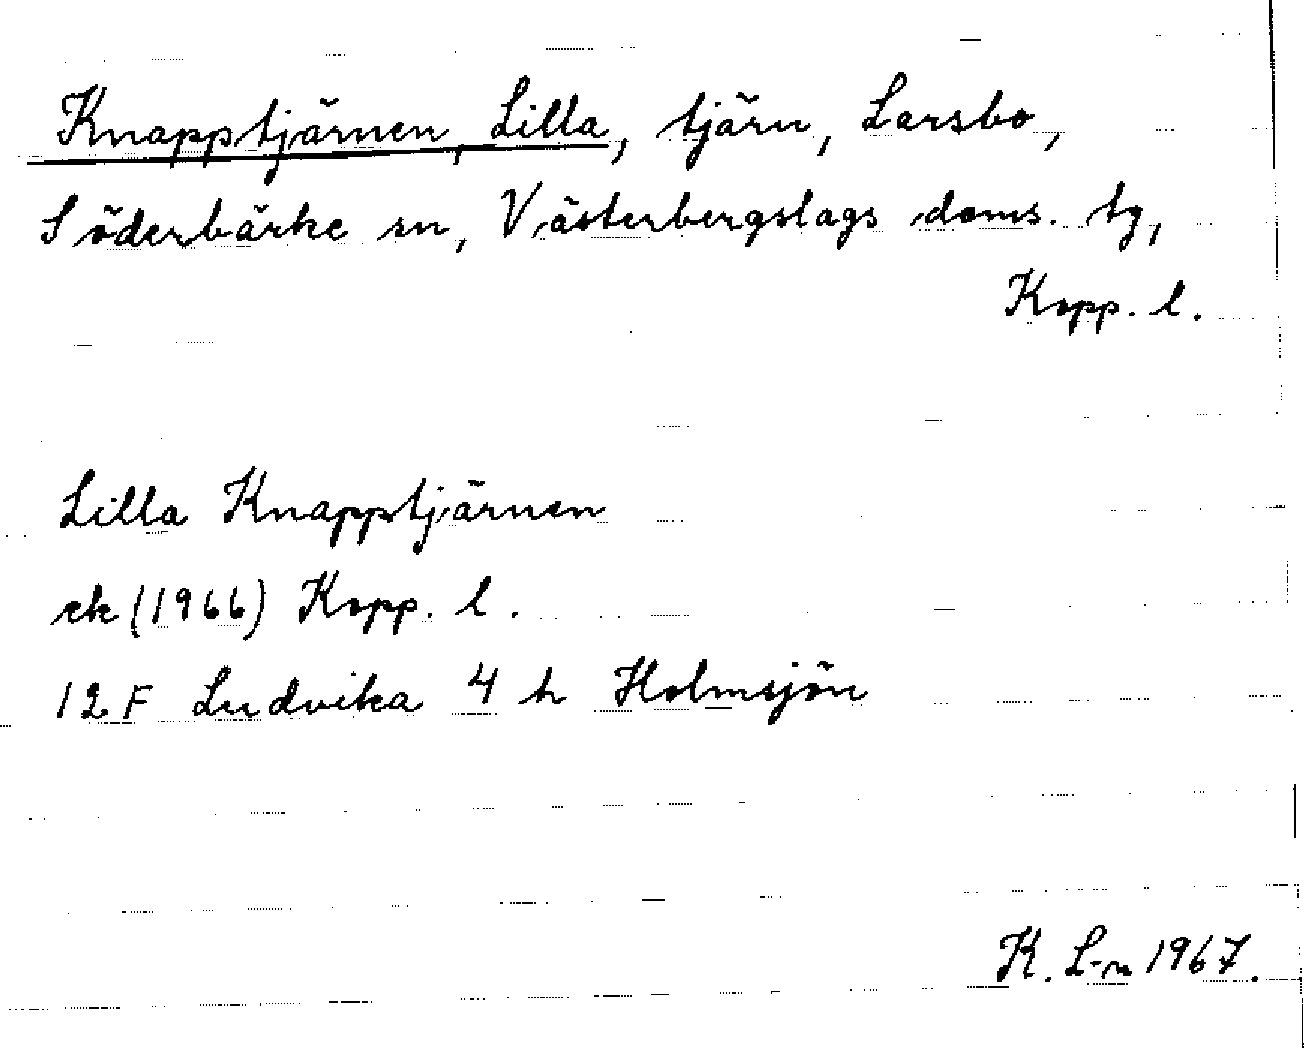 Knapptjärnen, Lilla, tjärn, Larsbo,
Söderbärke sn, Västerbergslags doms. tg,
Kopp. l.
Lilla Knapptjärnen
ek (1966) Kopp. l.
12 F Ludvika 4 h Holmsjön
K. L-n 1967.